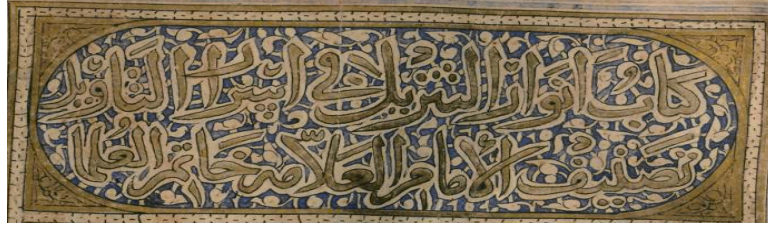 كتاب انوار التنزيل في اسرار التاويل
تصنيف الامام العلامه خاتم العلما